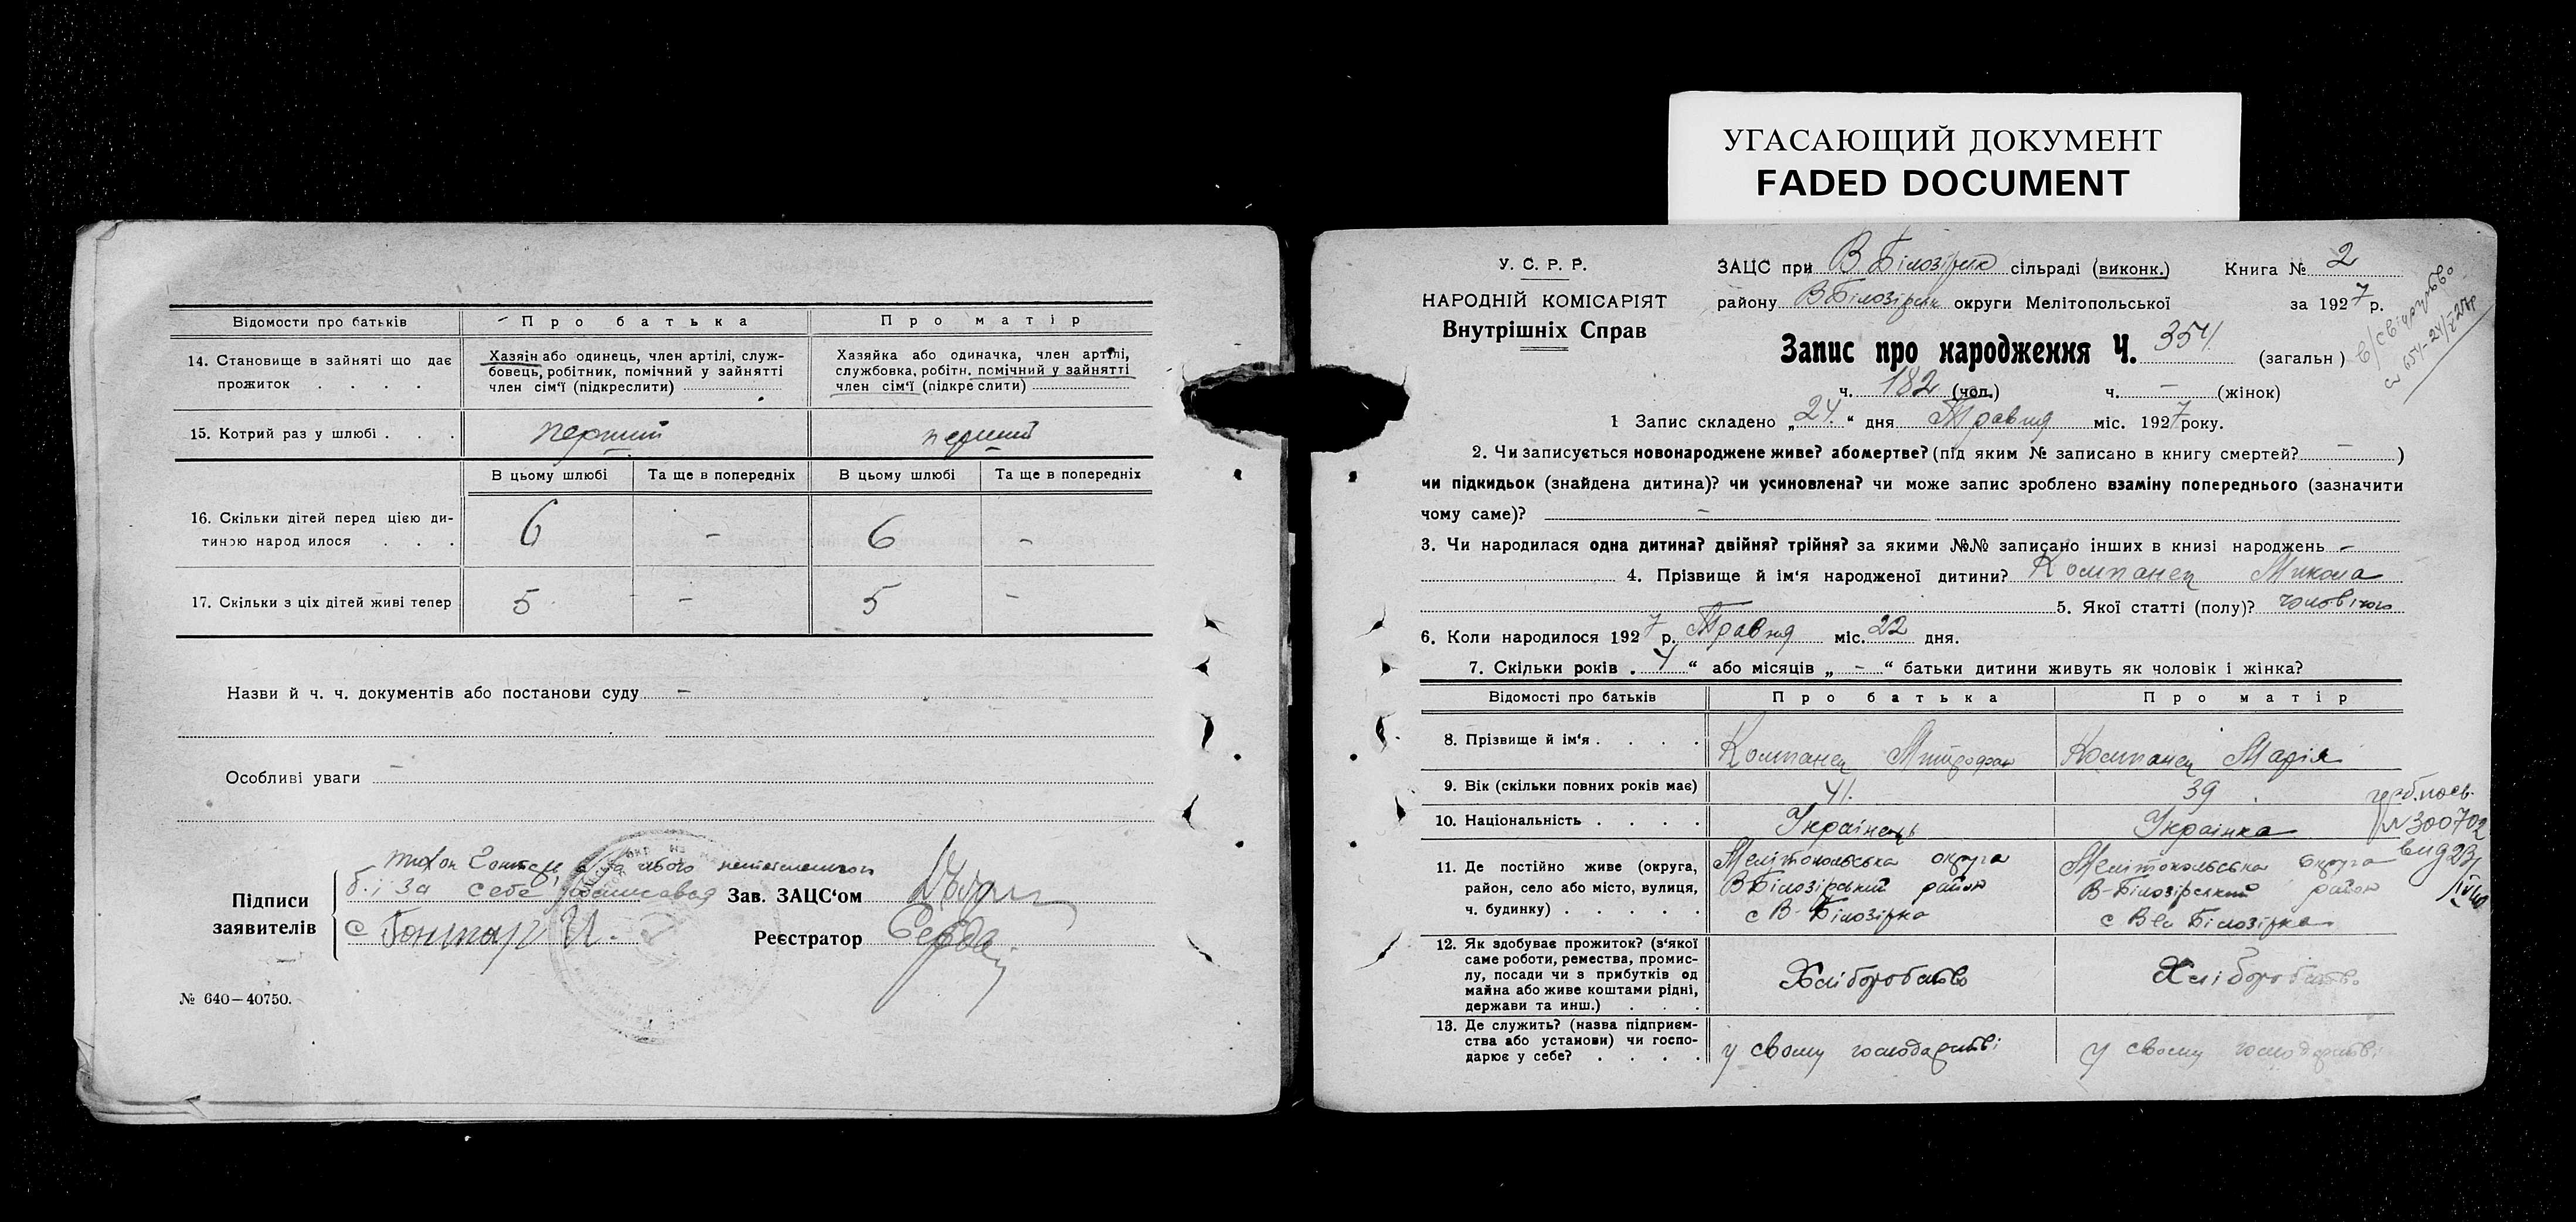 УГАСАЮЩИЙ ДОКУМЕНТ
FADED DOCUMENT
Відомости про батьків
Про батька
Про матір
14. Становище в зайняті що дає прожиток . . . .
Хазяін або одинець, член артілі, служ-
бовець, робітник, помічний у зайнятті
член сім'ї (підкреслити)
Хазяйка або одиначка, член артілі,
службовка, робітн. помічний у зайнятті
член сім'ї (підкреслити)
15. Котрий раз у шлюбі . . .
перший
перший
В цьому шлюбі
Та ще в попередніх
В цьому шлюбі
Та ще в попередніх
16. Скільки дітей перед цією ди-
тиною народилося . . .
6
-
6
-
17. Скільки з ціх дітей живі тепер
5
-
5
-
Назви й ч. ч. документів або постанови суду -
Особливі уваги -
Підписи
заявителів
б. і за себе
с Гонтар И.
Зав. ЗАЦС'ом
Реєстратор Серда
№ 640—40750.
У. С. Р. Р.
НАРОДНІЙ КОМІСАРІЯТ
Внутрішніх Справ
ЗАЦС при В Білозірск сільраді (виконк.) Книга № 2
району В Білозірск округи Мелітопольської за 1927 р.
Запис про народження Ч. 354 (загальн )
ч. 182 (чол.) ч. - (жінок)
1 Запис складено „24" дня Травня міс. 1927 року.
2. Чи записується новонароджене живе? або мертве? (під яким № записано в книгу смертей? - )
чи підкидьок (знайдена дитина)? чи усиновлена? чи може запис зроблено взаміну попереднього (зазначити
чому саме)? -
3. Чи народилася одна дитина? двійня? трійня? за якими №№ записано інших в книзі народжень -
4. Прізвище й ім'я народженої дитини? Компанец Микола
5. Якої статті (полу)? чоловічого
6. Коли народилося 1927 р. Травня міс. 22 дня.
7. Скільки років „ " або місяців „ - " батьки дитини живуть як чоловік і жінка?
Відомості про батьків
Про батька
Про матір
8. Прізвище й ім'я . . . .
Компанец Митрофан
Компанец Марія
9. Вік (скільки повних років має)
41.
39
10. Національність . . . .
Українець
Українка
№ 300702
11. Де постійно живе (округа,
район, село або місто, вулиця,
ч. будинку) . . . . .
Мелітопольська округа
В Білозірський район
с В-Білозірка
Мелітопольська округа
В-Білозірський район
с Вел Білозірка
12. Як здобуває прожиток? (з'якої
саме роботи, ремества, промис-
лу, посади чи з прибутків од
майна або живе коштами рідні,
держави та инш.) . . .
Хліборобство
Хліборобство
13. Де служить? (назва підприєм-
ства або установи) чи госпо-
дарює у себе? . . . .
у свому господарстві
у свому господарстві